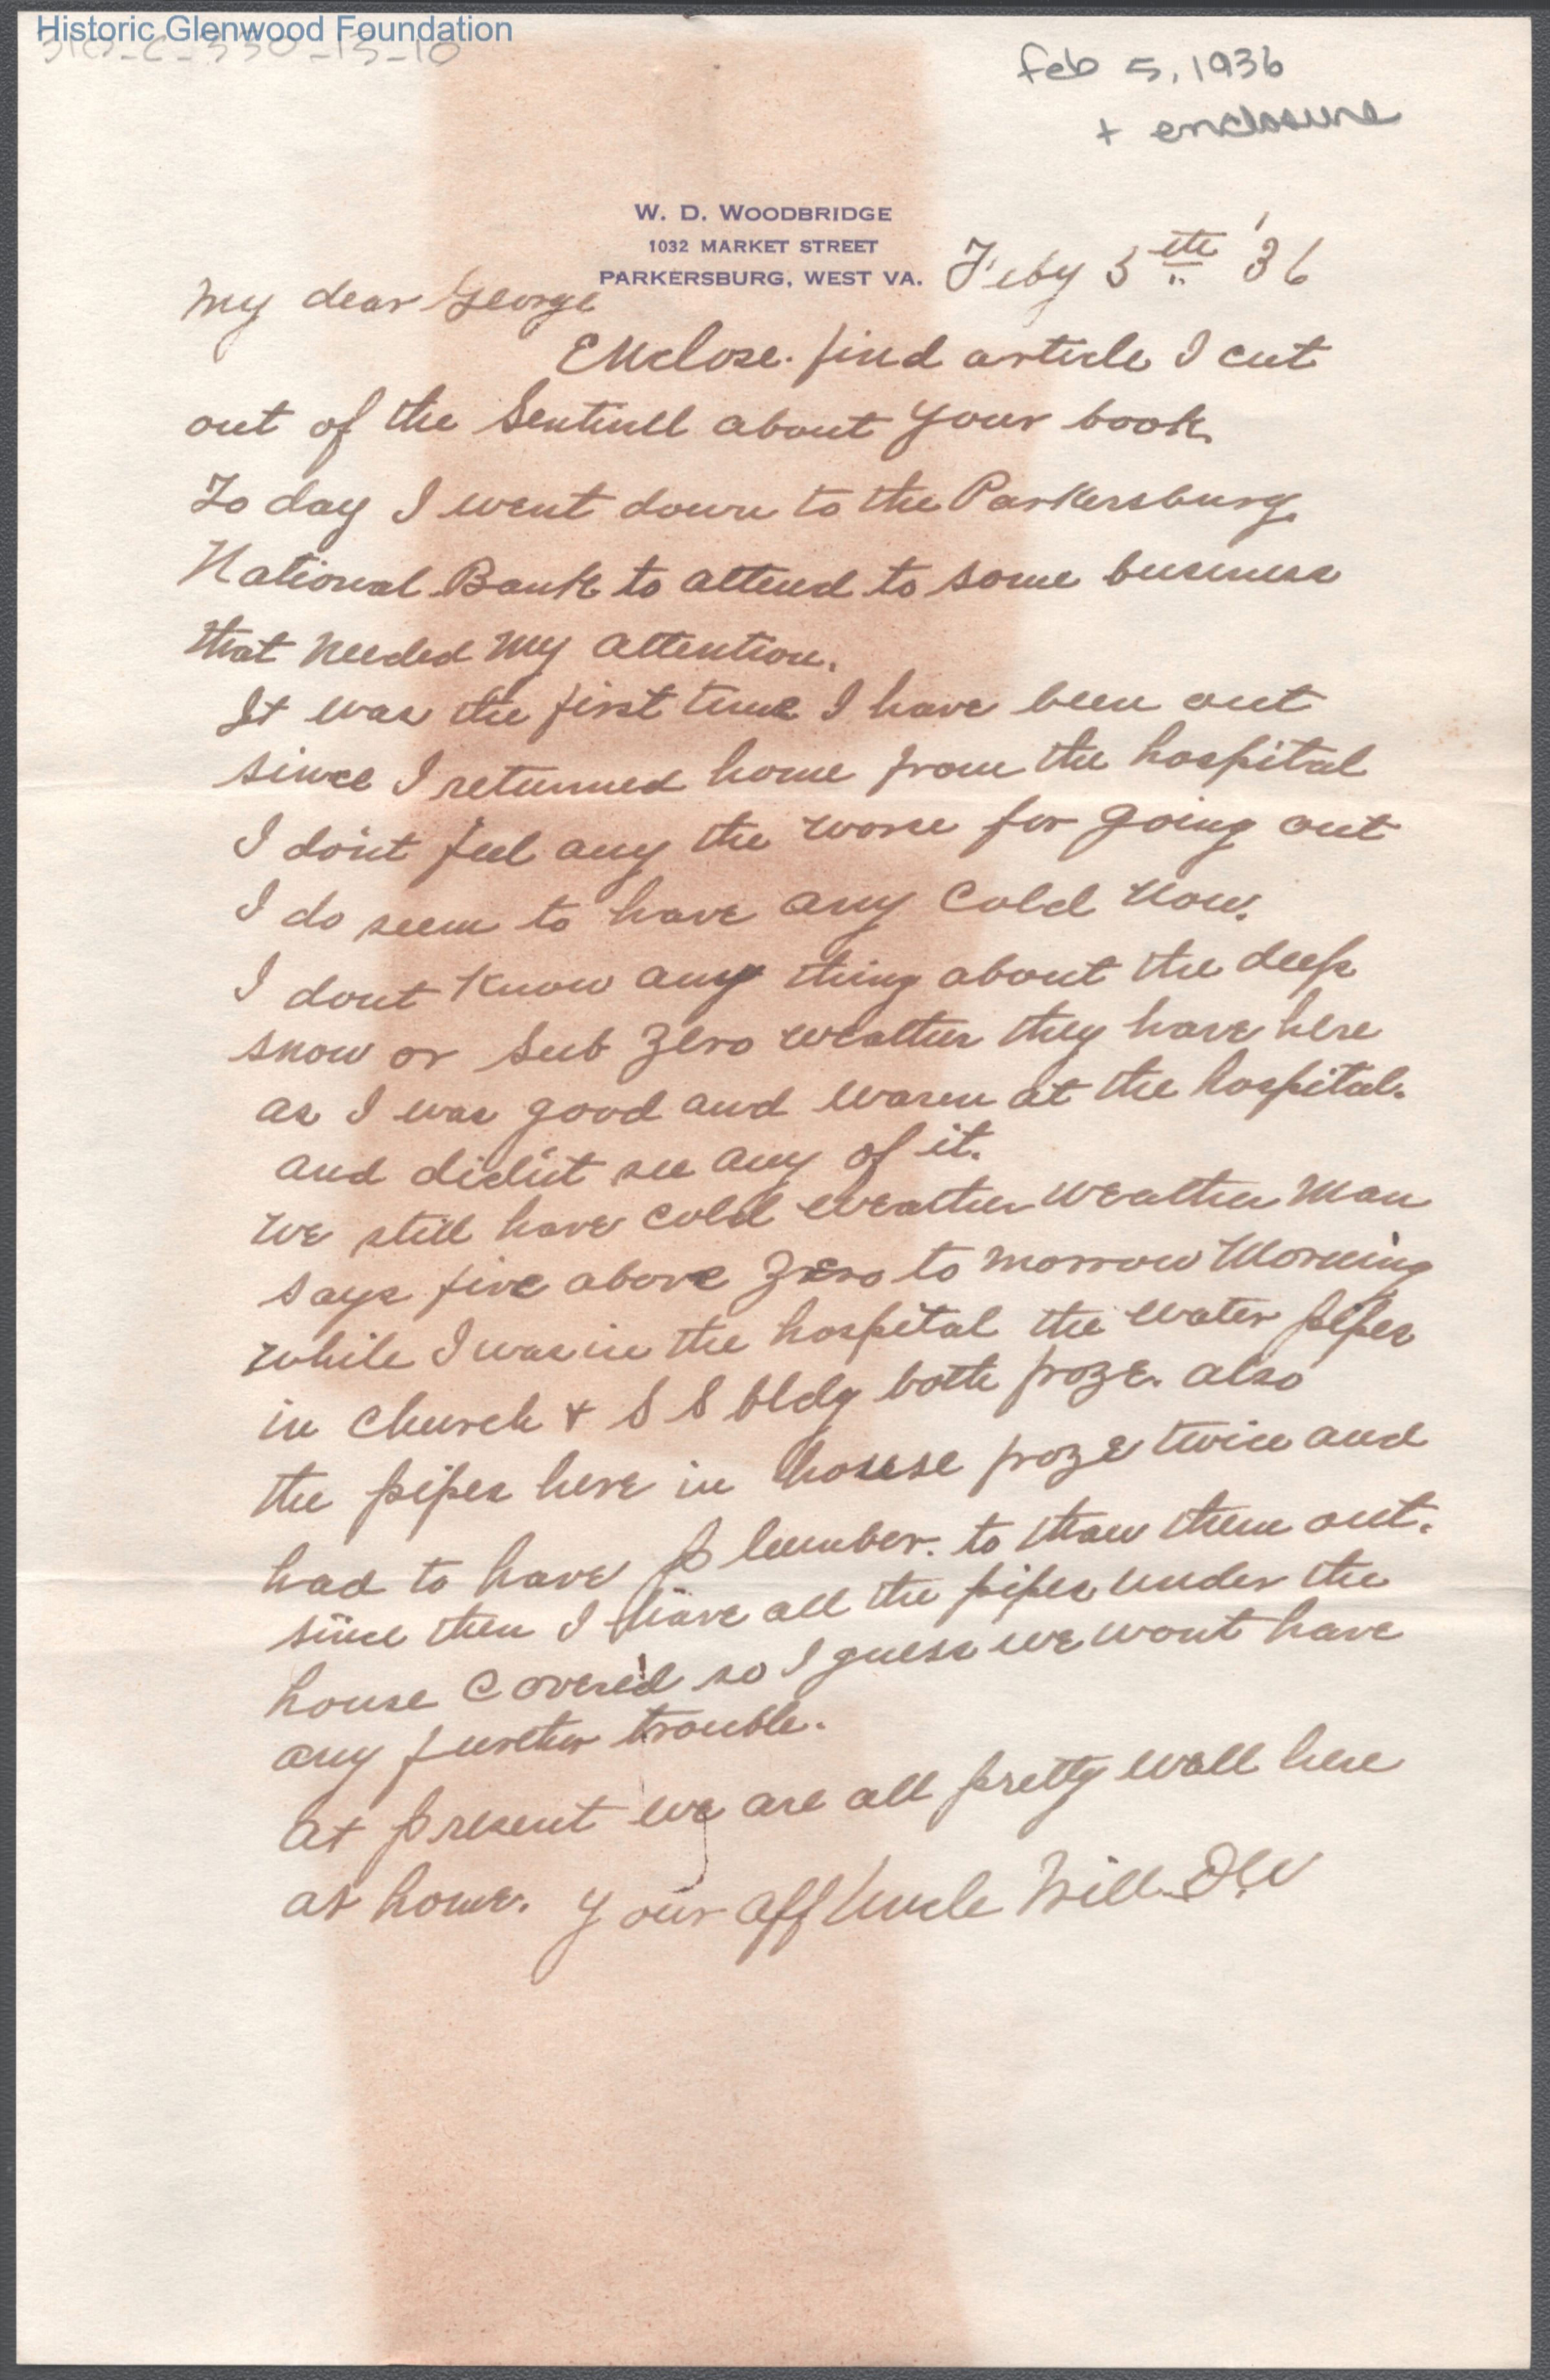 Historic Glenwood Foundation
310-C-330-13-10
Feb 5, 1936
+ enclosure
W. D. WOODBRIDGE
1032 MARKET STREET
PARKERSBURG, WEST VA.
Feby 5th '36
My dear George
Enclose. find article I cut
out of the Sentinell about your book.
To day I went down to the Parkersburg
National Bank to attend to some business
that needed my attention.
It was the first time I have been out
since I returned home from the hospital
I don't feel any the worse for going out
I do seem to have any cold now.
I dont know any thing about the deep
snow or sub zero weather they have here
as I was good and warm at the hospital.
and didn't see any of it.
We still have cold weather weather man
says five above zero to morrow morning
while I was in the hospital the water pipes
in church & S S bldg both froze. also
the pipes here in house froze twice and
had to have plumber. to thaw them out.
since then I have all the pipes under the
house covered so I guess we wont have
any further trouble.
At present we are all pretty well here
at home. Your aff Uncle Will. DW